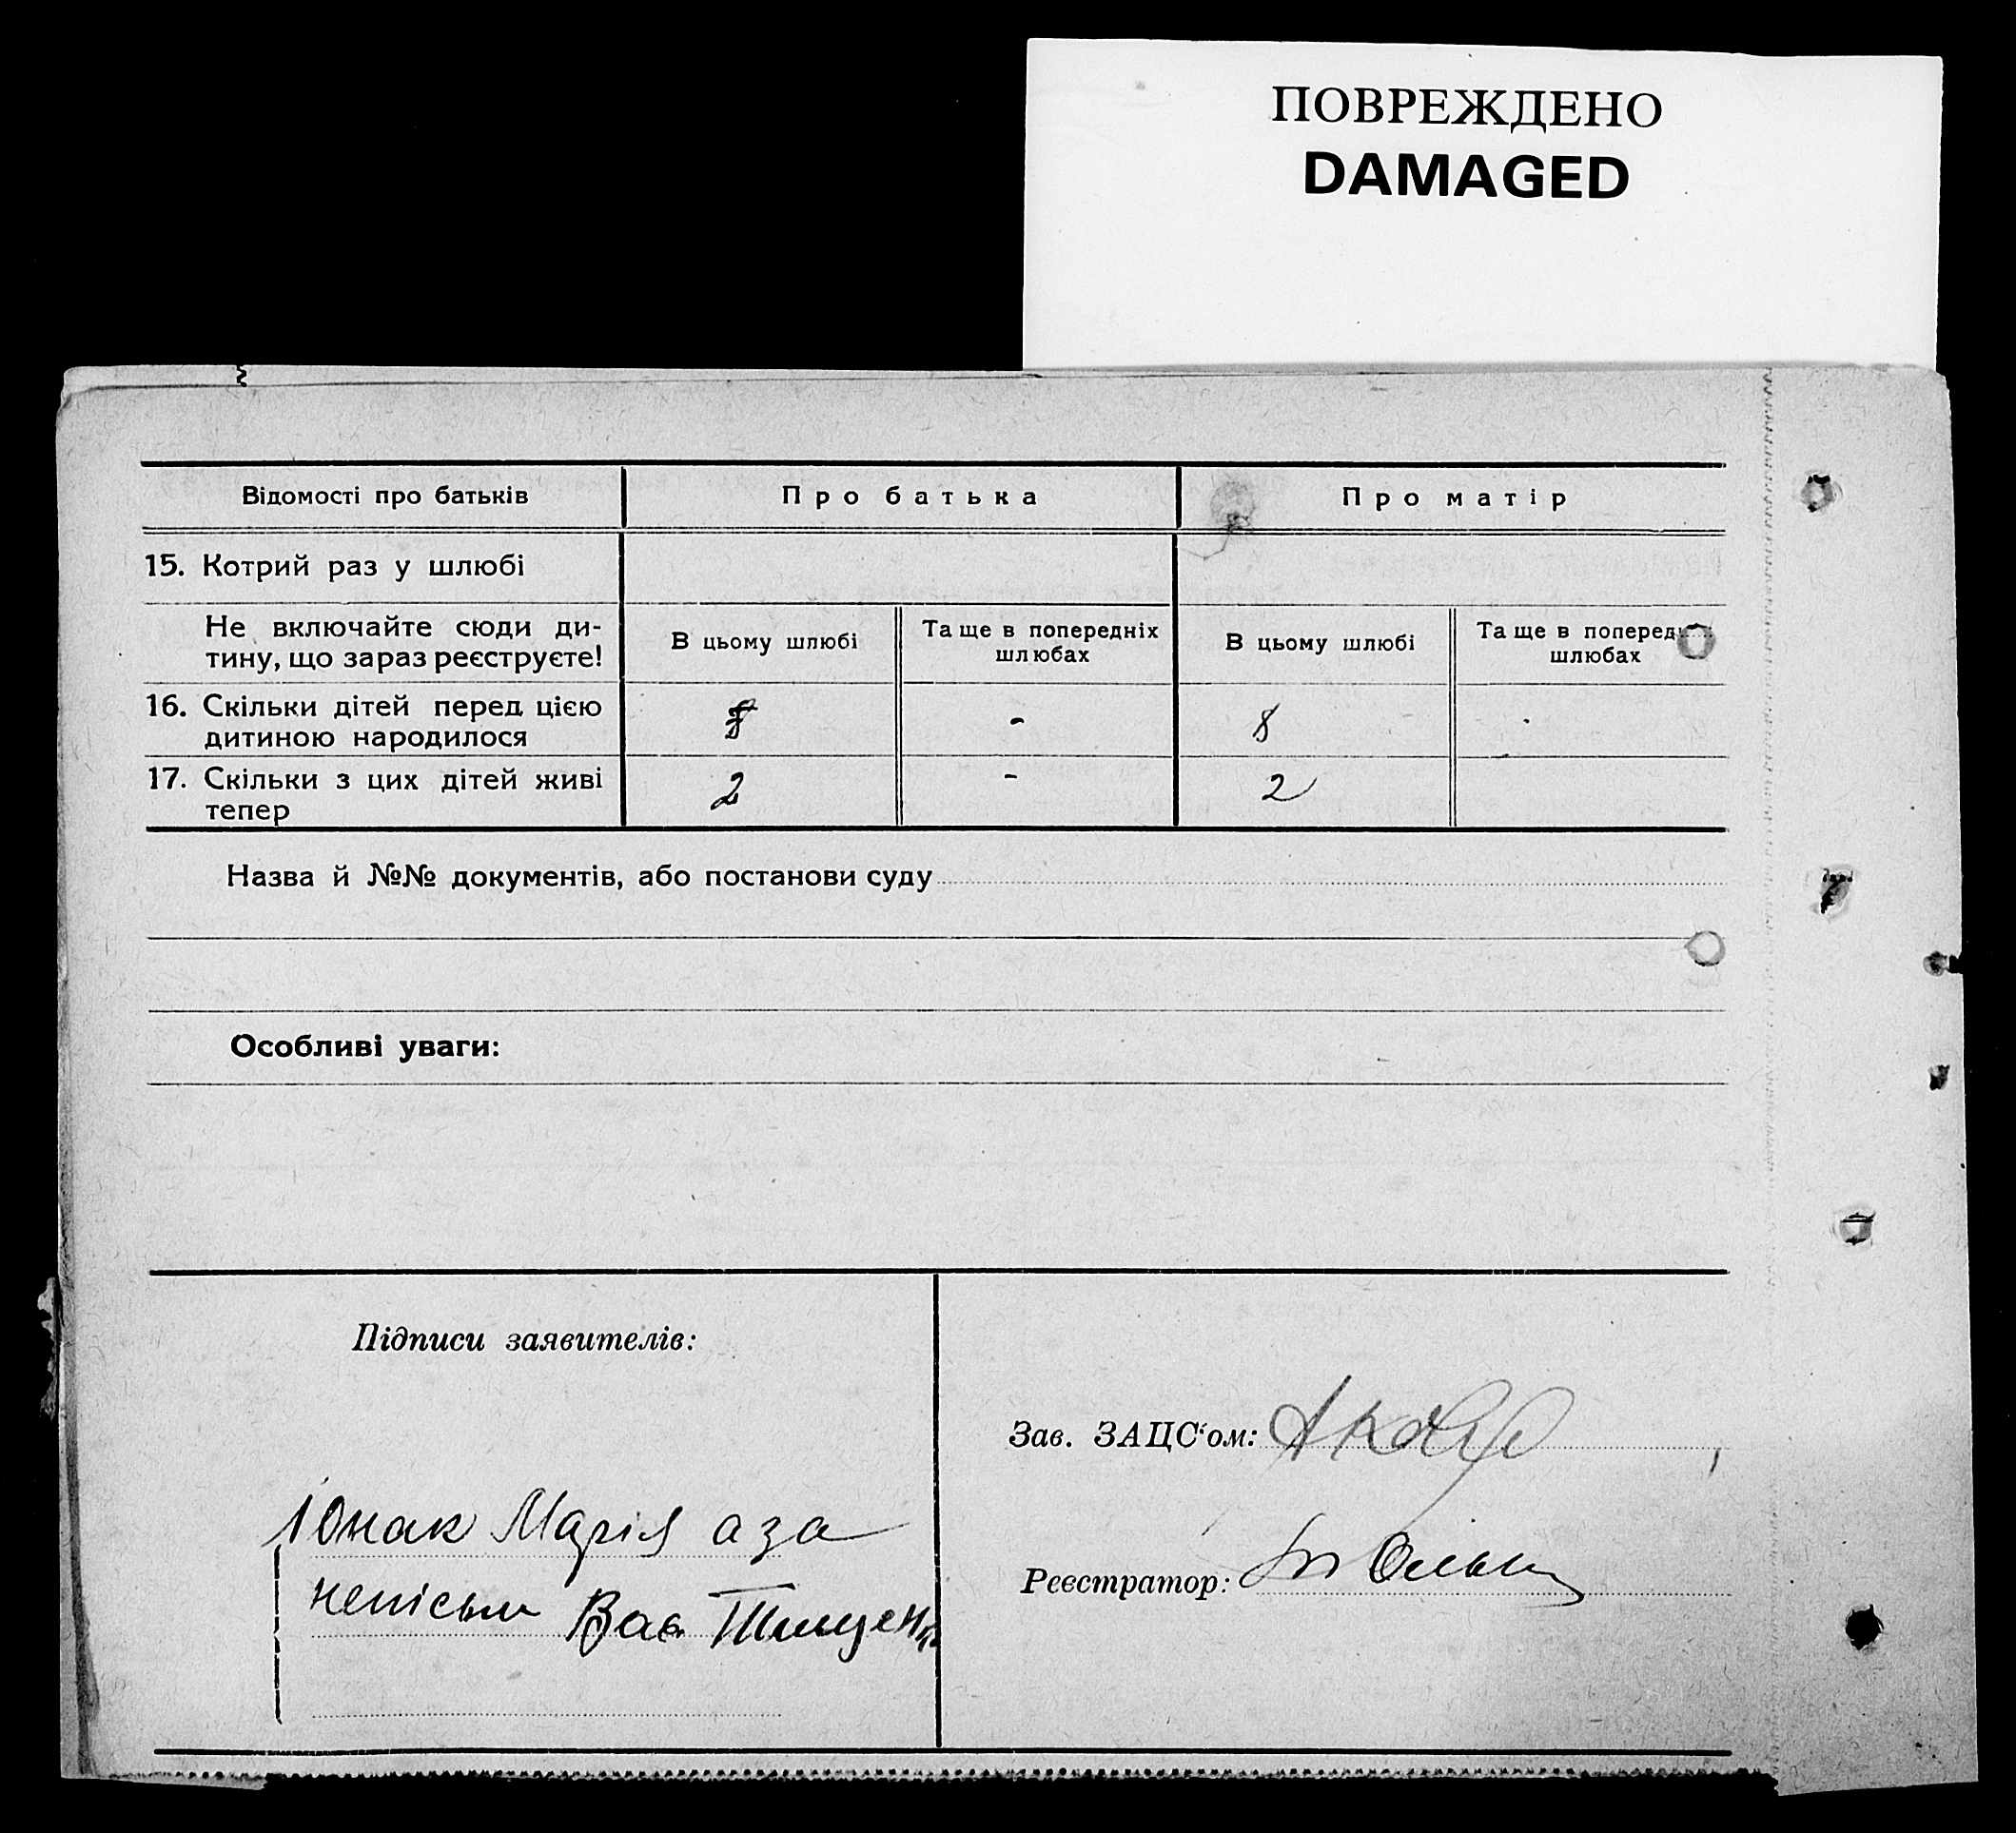 ПОВРЕЖДЕНО
DAMAGED
Відомості про батьків
Про батька
Про матір
15. Котрий раз у шлюбі
Не включайте сюди ди-
тину, що зараз реєструєте!
В цьому шлюбі
Та ще в попередніх
шлюбах
В цьому шлюбі
Та ще в поперед
шлюбах
16. Скільки дітей перед цією
дитиною народилося
8
-
8
17. Скільки з цих дітей живі
тепер
2
-
2
Назва й №№ документів, або постанови суду
Особливі уваги:
Підписи заявителів:
Зав. ЗАЦС‘ом:
Юнак Марія а за
непісьм Вас Тимценк
Реєстратор: